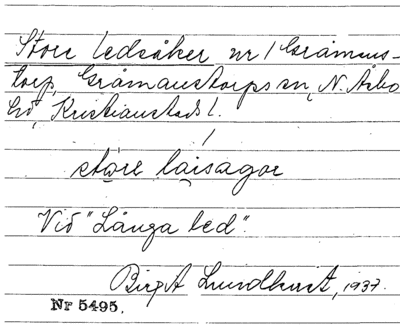 Store ledsåker nr 1 Gråmans-
torp, Gråmanstorps sn, N. Åsbo
hd, Kristianstads l.
støre laisagor
Vid "Långa led".
Birgit Lundkvist, 1937.
Nr 5495.